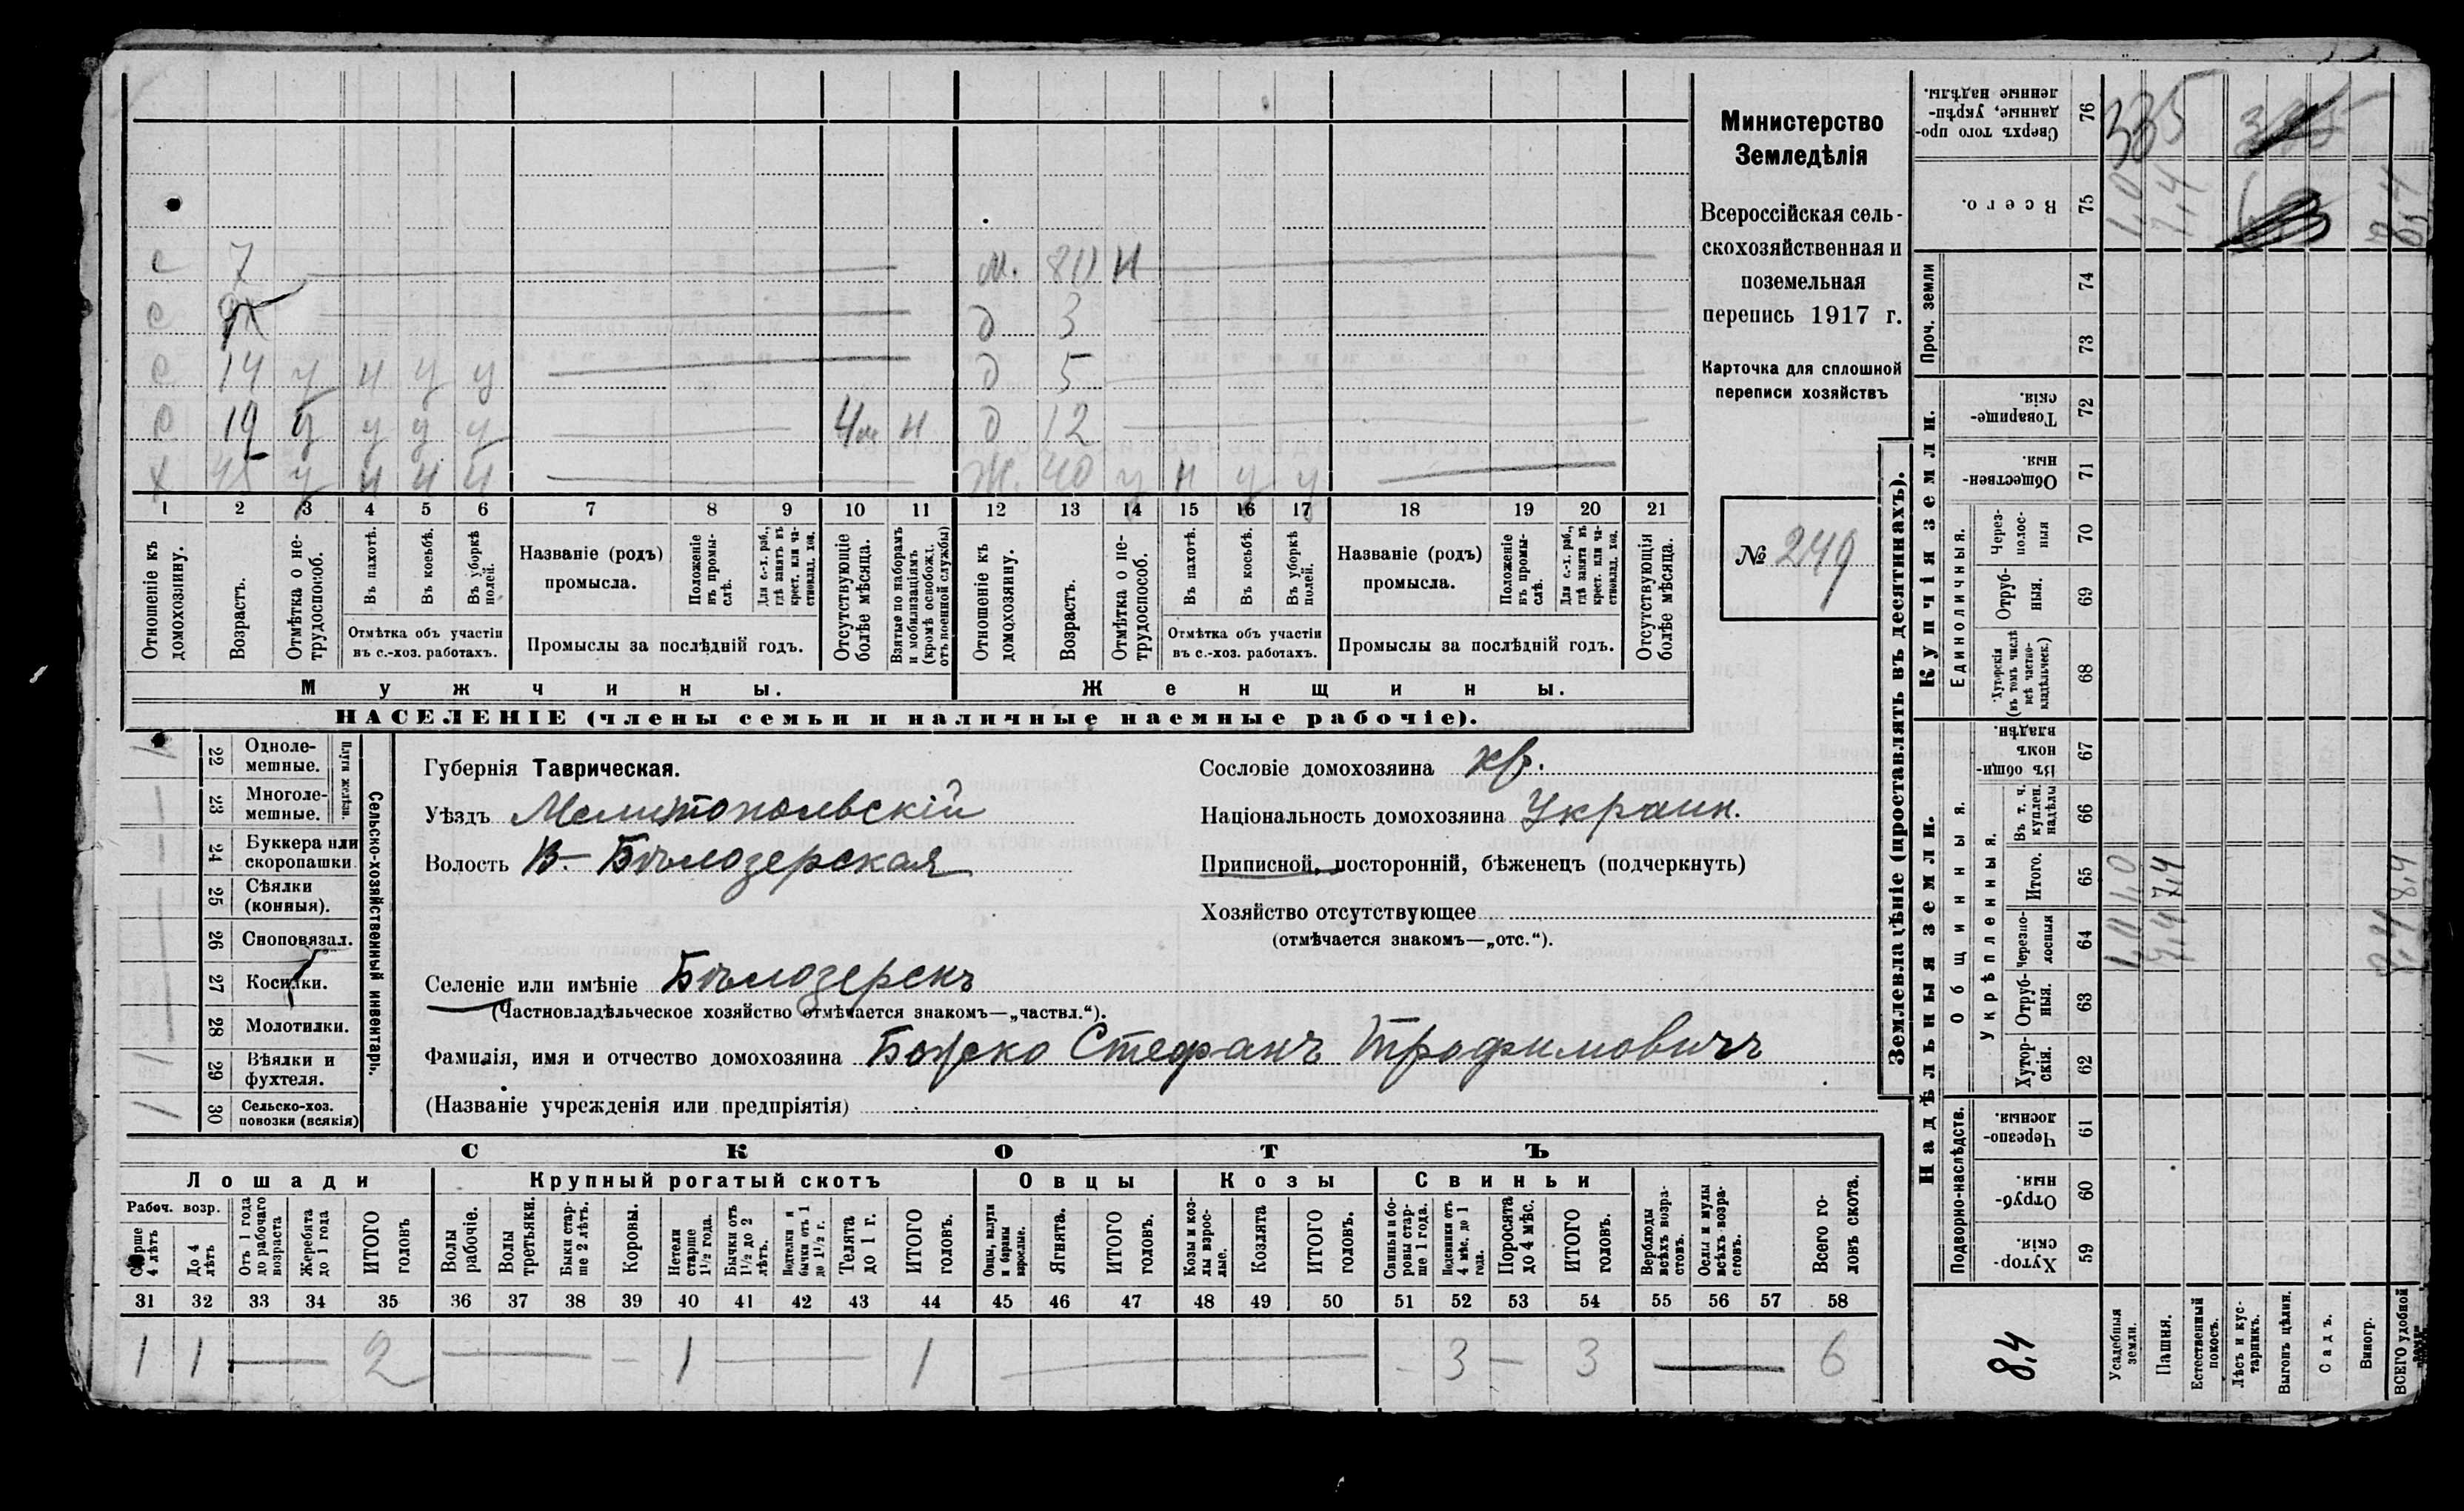 с 7 м. 80 н
с д 3
с 14 у н у у д 5
с 19 у у у у 4м н д 12
х 45 у ч ч ч Ж. 40 у н у у
1 2 3 4 5 6 7 8 9 10 11 12 13 14 15 16 17 18 19 20 21
Отношеніе къ домохозяину.
Возрастъ.
Отмѣтка о нетрудоспособ.
Въ пахотѣ.
Въ косьбѣ.
Въ уборкѣ полей.
Отмѣтка объ участіи
въ с.-хоз. работахъ.
Названіе (родъ)
промысла.
Положеніе въ промыслѣ.
Для с.-х. раб., гдѣ занятъ въ крест. или частновлад. хоз.
Промыслы за послѣдній годъ.
Отсутствующіе болѣе мѣсяца.
Взятые по наборамъ и мобилизаціямъ (кромѣ освобожд. отъ военной службы)
Отношеніе къ домохозяину.
Возрастъ.
Отмѣтка о нетрудоспособ.
Въ пахотѣ.
Въ косьбѣ.
Въ уборкѣ полей.
Отмѣтка объ участіи
въ с.-хоз. работахъ.
Названіе (родъ)
промысла.
Положеніе въ промыслѣ.
Для с.-х. раб., гдѣ занята въ крест. или частновлад. хоз.
Промыслы за послѣдній годъ.
Отсутствующія болѣе мѣсяца.
Мужчины.
Женщины.
НАСЕЛЕНІЕ (члены семьи и наличные наемные рабочіе).
Министерство
Земледѣлія
Всероссійская сель-
скохозяйственная и
поземельная
перепись 1917 г.
Карточка для сплошной
переписи хозяйствъ
№ 249
22 Однолемешные. 1
23 Многолемешные.
Плуги желѣзн.
24 Буккера или скоропашки
25 Сѣялки (конныя).
26 Сноповязал.
27 Косилки.
28 Молотилки.
29 Вѣялки и фухтеля. 1
30 Сельско-хоз. повозки (всякія) 1
Сельско-хозяйственный инвентарь.
Губернія Таврическая.
Уѣздъ Мелитопольскій
Волость В-Бѣлозерская
Селеніе или имѣніе Бѣлозерскъ
(Частновладѣльческое хозяйство отмѣчается знакомъ—„частвл.“).
Фамилія, имя и отчество домохозяина Стефанъ Трофимовичъ
(Названіе учрежденія или предпріятія)
Сословіе домохозяина кр.
Національность домохозяина Украин.
Приписной, посторонній, бѣженец (подчеркнуть)
Хозяйство отсутствующее
(отмѣчается знакомъ—„отс.“).
СКОТЪ
Лошади Крупный рогатый скотъ Овцы Козы Свиньи
Рабоч. возр.
Старше 4 лѣтъ
До 4 лѣтъ
Отъ 1 года до рабочаго возраста
Жеребята до 1 года
ИТОГО головъ
Волы рабочіе.
Волы третьяки.
Быки старше 2 лѣтъ.
Коровы.
Нетели старше 1½ года.
Бычки отъ 1½ до 2 лѣтъ.
Подтелки и бычки отъ 1 до 1½ г.
Телята до 1 г.
ИТОГО головъ.
Овцы, валухи и бараны взрослые.
Ягнята.
ИТОГО головъ.
Козы и козлы взрослые.
Козлята
ИТОГО головъ.
Свиньи и боровы старше 1 года.
Подсвинки отъ 4 мѣс. до 1 года.
Поросята до 4 мѣс.
ИТОГО головъ.
Верблюды всѣхъ возрастовъ.
Ослы и мулы всѣхъ возрастовъ.
Всего головъ скота.
31 32 33 34 35 36 37 38 39 40 41 42 43 44 45 46 47 48 49 50 51 52 53 54 55 56 57 58
1 1 — 2 — — 1 — 1 — — 3 — 3 — 6
Землевладѣніе (проставлять въ десятинахъ).
Надѣльныя земли.
Купчія земли.
Подворно-наслѣдств.
Общинныя.
Укрѣпленныя.
Единоличныя.
Проч. земли
Хуторскія. 59
Отрубныя. 60
Черезполосныя. 61
Хуторскія. 62
Отрубныя. 63
Черезполосныя 64
Итого. 65
Въ т. ч. куплен. надѣлы 66
Въ общинномъ владѣн. 67
Хуторскія (въ томъ числѣ всѣ частновладѣльческ.) 68
Отрубныя. 69
Черезполосныя 70
Общественныя. 71
Товарищескія. 72
73
74
Всего. 75
Сверхъ того проданные, укрѣпленные надѣлы. 76
Усадебныя земли. 1,0 1,0 1,0
Пашня. 7,4 7,4 7,4
Естественный покосъ.
Лѣсъ и кустарникъ.
Выгонъ цѣлин.
Садъ.
Виногр.
ВСЕГО удобной земли 8,4 8,4 8,4
335
8,4